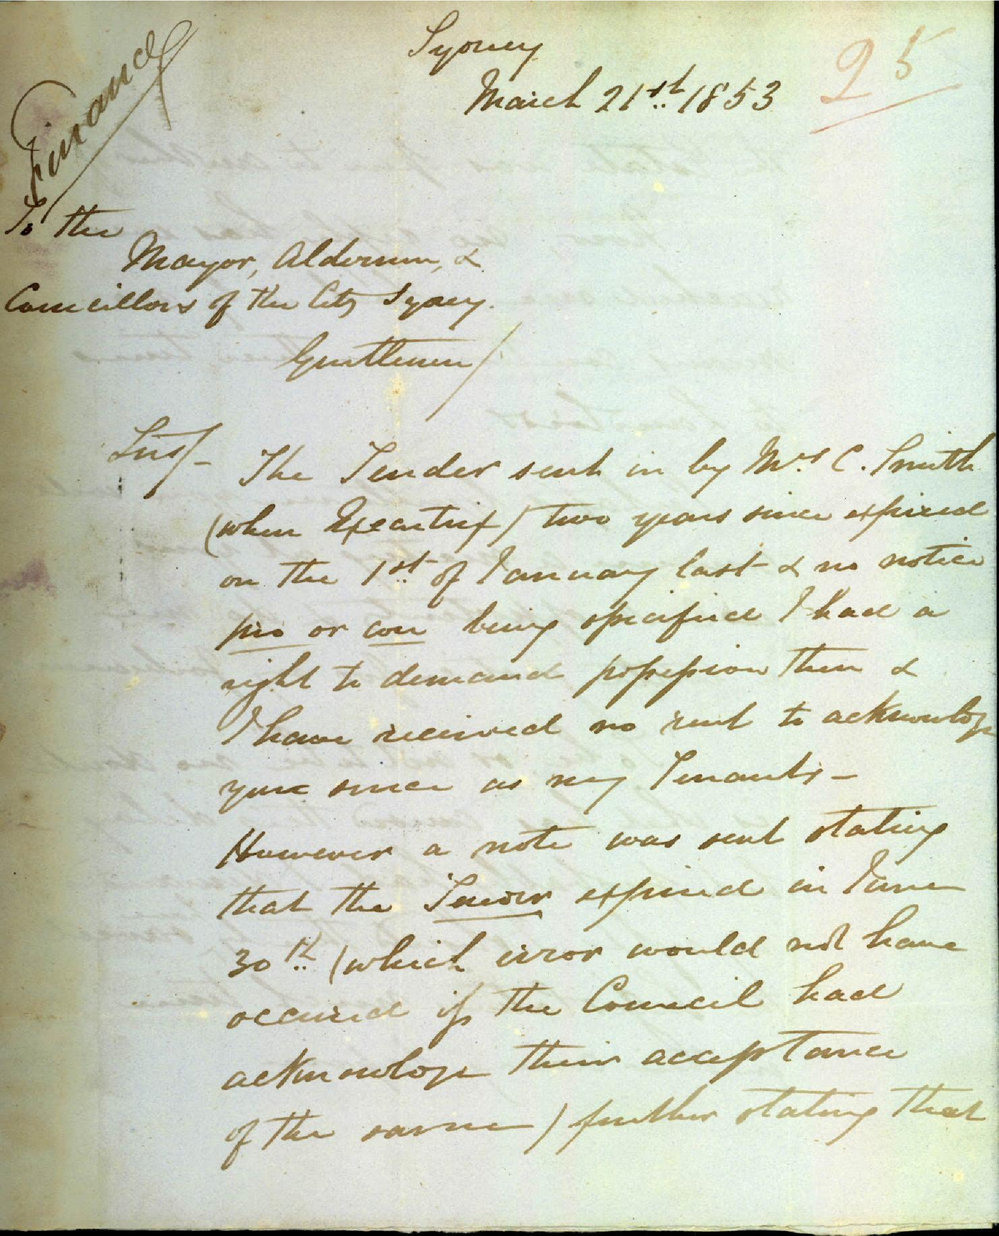 Finance
Sydney
March 21st. 1853
25
To the
Mayor, Aldermen, &
Councillors of the City Sydney.
Gentlemen/
Sirs/-
The Tender sent in by Mrs C. Smith
(when Executrix) two years since expired
on the 1st of January last & no notice
pro or con being specified I had a
right to demand possession then &
I have received no rent to acknowloge
you since as my Tenants -
However a note was sent stating
that the Tenor expired in June
30th. (which error would not have
occured if the Council had
acknowloge their acceptance
of the same) further stating that